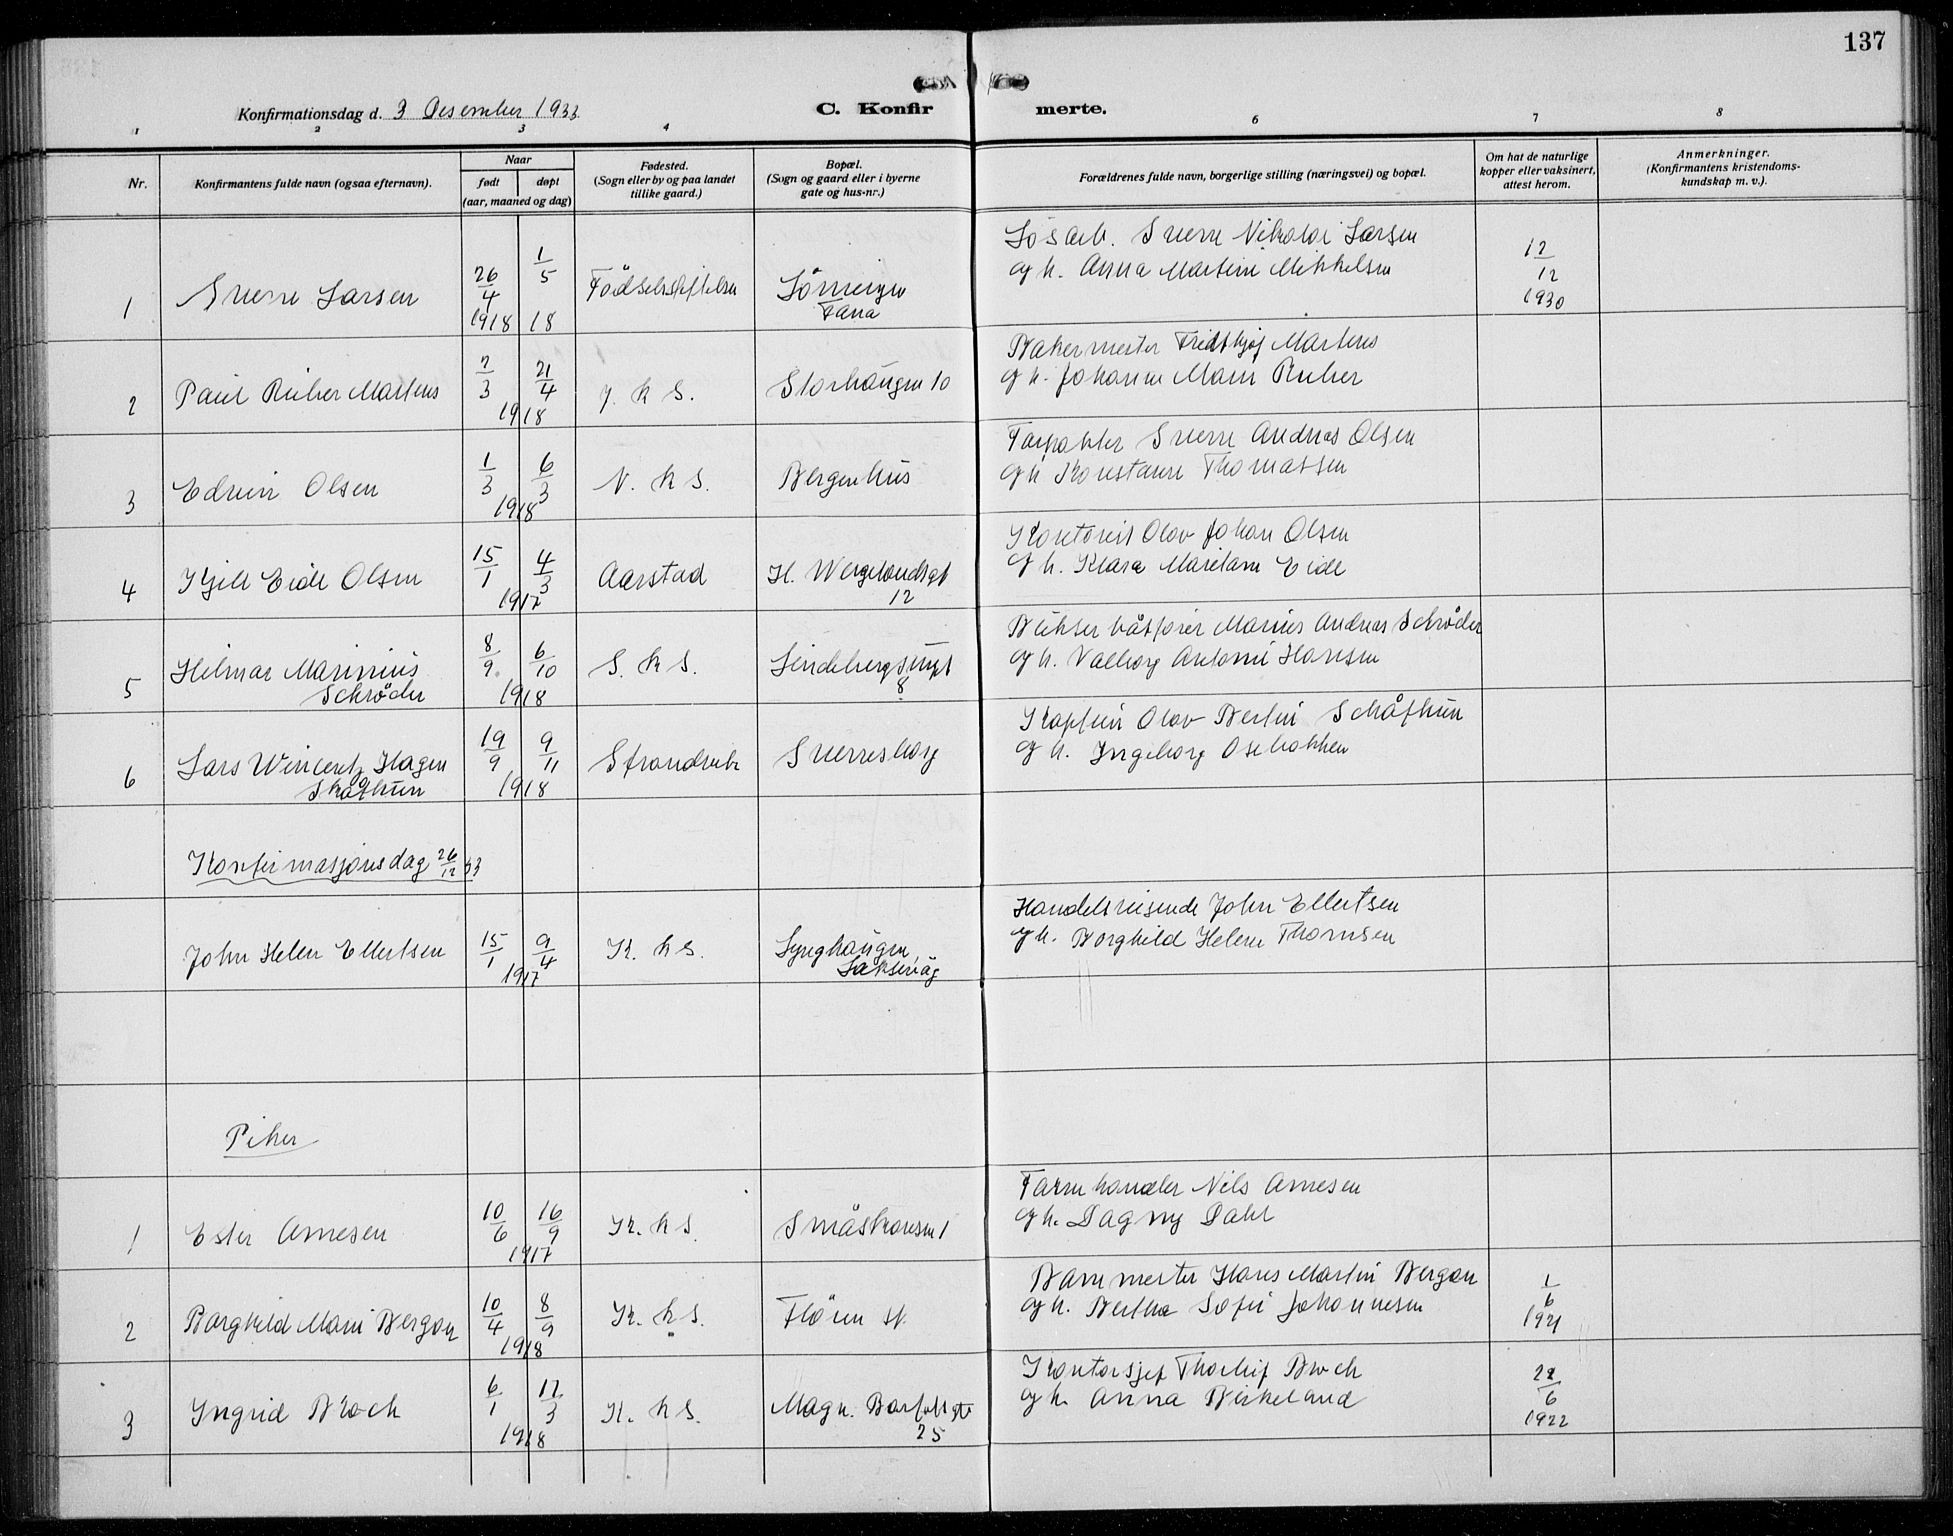 137
Konfirmationsdag d. 3 Desember 1933
C. Konfir merte.
1 2 3 4 6 7 8
Nr.
Konfirmantens fulde navn (ogsaa efternavn).
Naar
født døpt
(aar, maaned og dag)
Fødested.
(Sogn eller by og paa landet
tillike gaard.)
Bopæl.
(Sogn og gaard eller i byerne
gate og hus-nr.)
Forældrenes fulde navn, borgerlige stilling (næringsvei) og bopæl.
Om hat de naturlige
kopper eller vaksinert,
attest herom.
Anmerkninger.
(Konfirmantens kristendoms-
kundskap m. v.).
1 Sverre Larsen 26/4 1918 1/5 18 Fødselsstiftelsen
Fana
Løsarb. Sverre Nikolai Larsen
og h. Anna Martine Mikkelsen
12/12 1930
2 Paul Rieber Martens 2/3 21/4 1918 J. k s. Storhaugen 10
Bakermester Fridthjof Martens
og h. Johanne Marie Rieber
3 Edvin Olsen 1/3 6/3 1918 N. k s. Bergenhus
Sverre Andreas Olsen
og h Konstanse Thomassen
4 Kjell Eide Olsen 15/1 4/3 1917 Aarstad H. Wergelandsgt
12
Kontorist Olov Johan Olsen
og h. Klara Eide
5 Hilmar Marinius
Schrøder 8/9 6/10 1918 S. k s.
8
Marius Andreas Schrøder
og h. Valborg Antonie Hansen
6 Lars Wincentz Hagen
Skåthun 19/9 9/11 1918 Strandvik Sverresborg
Kaptein Olov Bertin Schåthun
og h. Ingeborg Osebakken
Konfirmasjonsdag 26/12 33
John Helen Ellertsen 15/1 9/4 1917 K. k s. Lynghaugen,
Laksevåg
Handelsreisende John Ellertsen
og h. Borghild Helene Thomsen
Piker
1 Ester Arnesen 10/6 16/9 1917 K. k s. Småskansen 1
Nils Arnesen
og h. Dagny Dahl
2 Borghild Marie Bergan 10/4 8/9 1918 K. k s. Fløien st.
Banemester Hans Martin Bergan
og h. Bertha Sofie Johannesen
1/6 1921
3 Ingrid Broch 6/1 17/3 1918 K. k s. Magn. Barfotsgt
25
Kontorsjef Thorleif Broch
og h. Anna Birkeland
22/6 1922